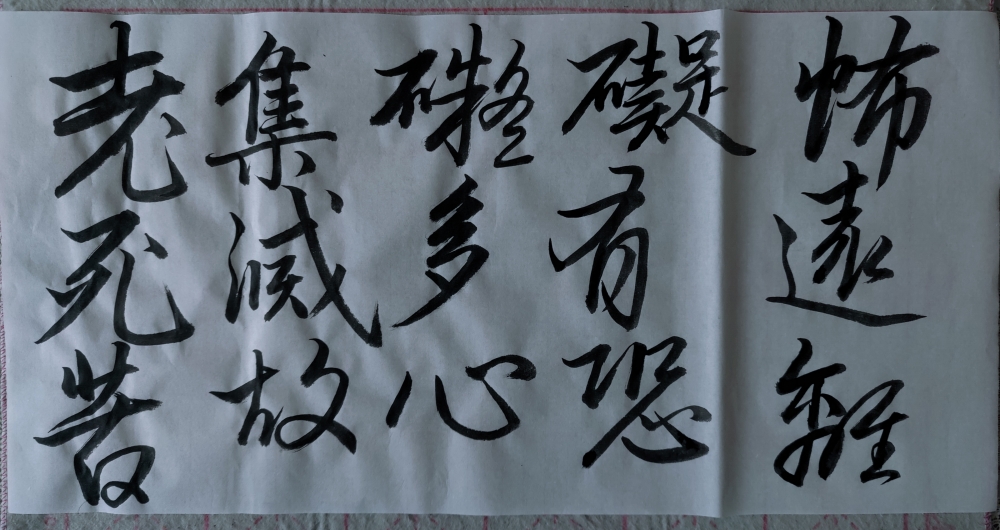 怖遠離
礙有恐
多心
集滅故
老死苦